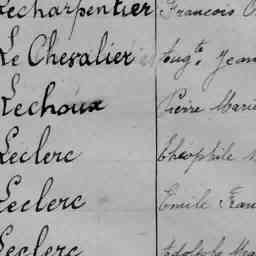 Lecharpentier François
Le Chevalier Augte. Jean
Lechoux Pierre Marie
Leclerc Théophile
Leclerc Emile Fran
Leclerc Adolphe